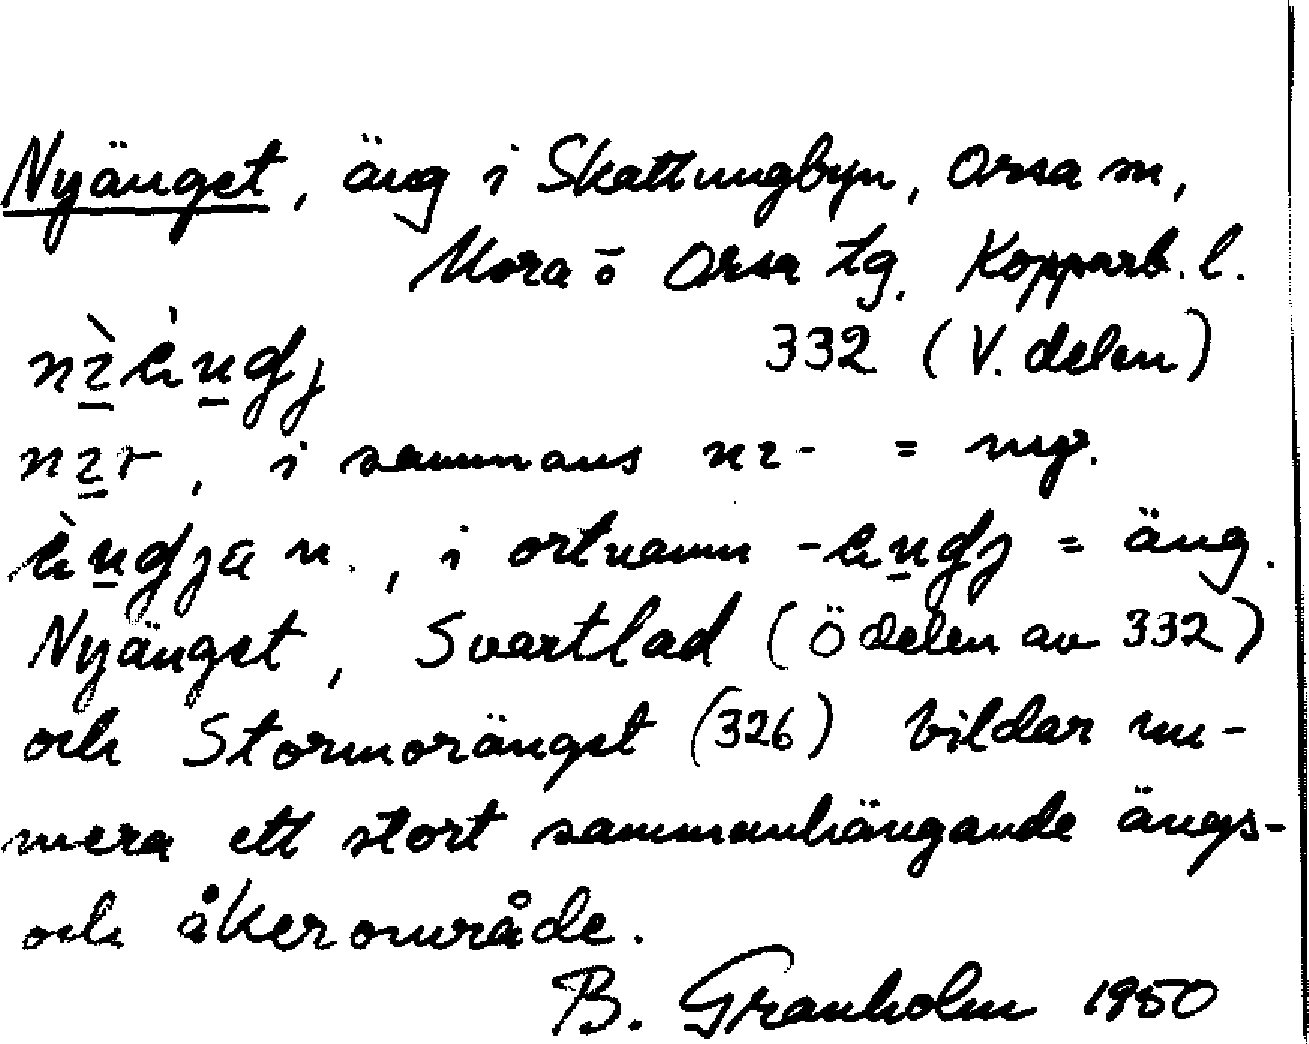 Nyänget, äng i Skattungbyn, Orsa sn,
Mora o Orsa tg. Kopparb. l.
332 (V. delen)
i sammans = ny.
i ortnamn = äng.
Nyänget, Svartlad (Ö delen av 332)
och Stormoränget (326) bildar nu-
mera ett stort sammanhängande ängs-
och åkerområde.
B. Granholm 1950